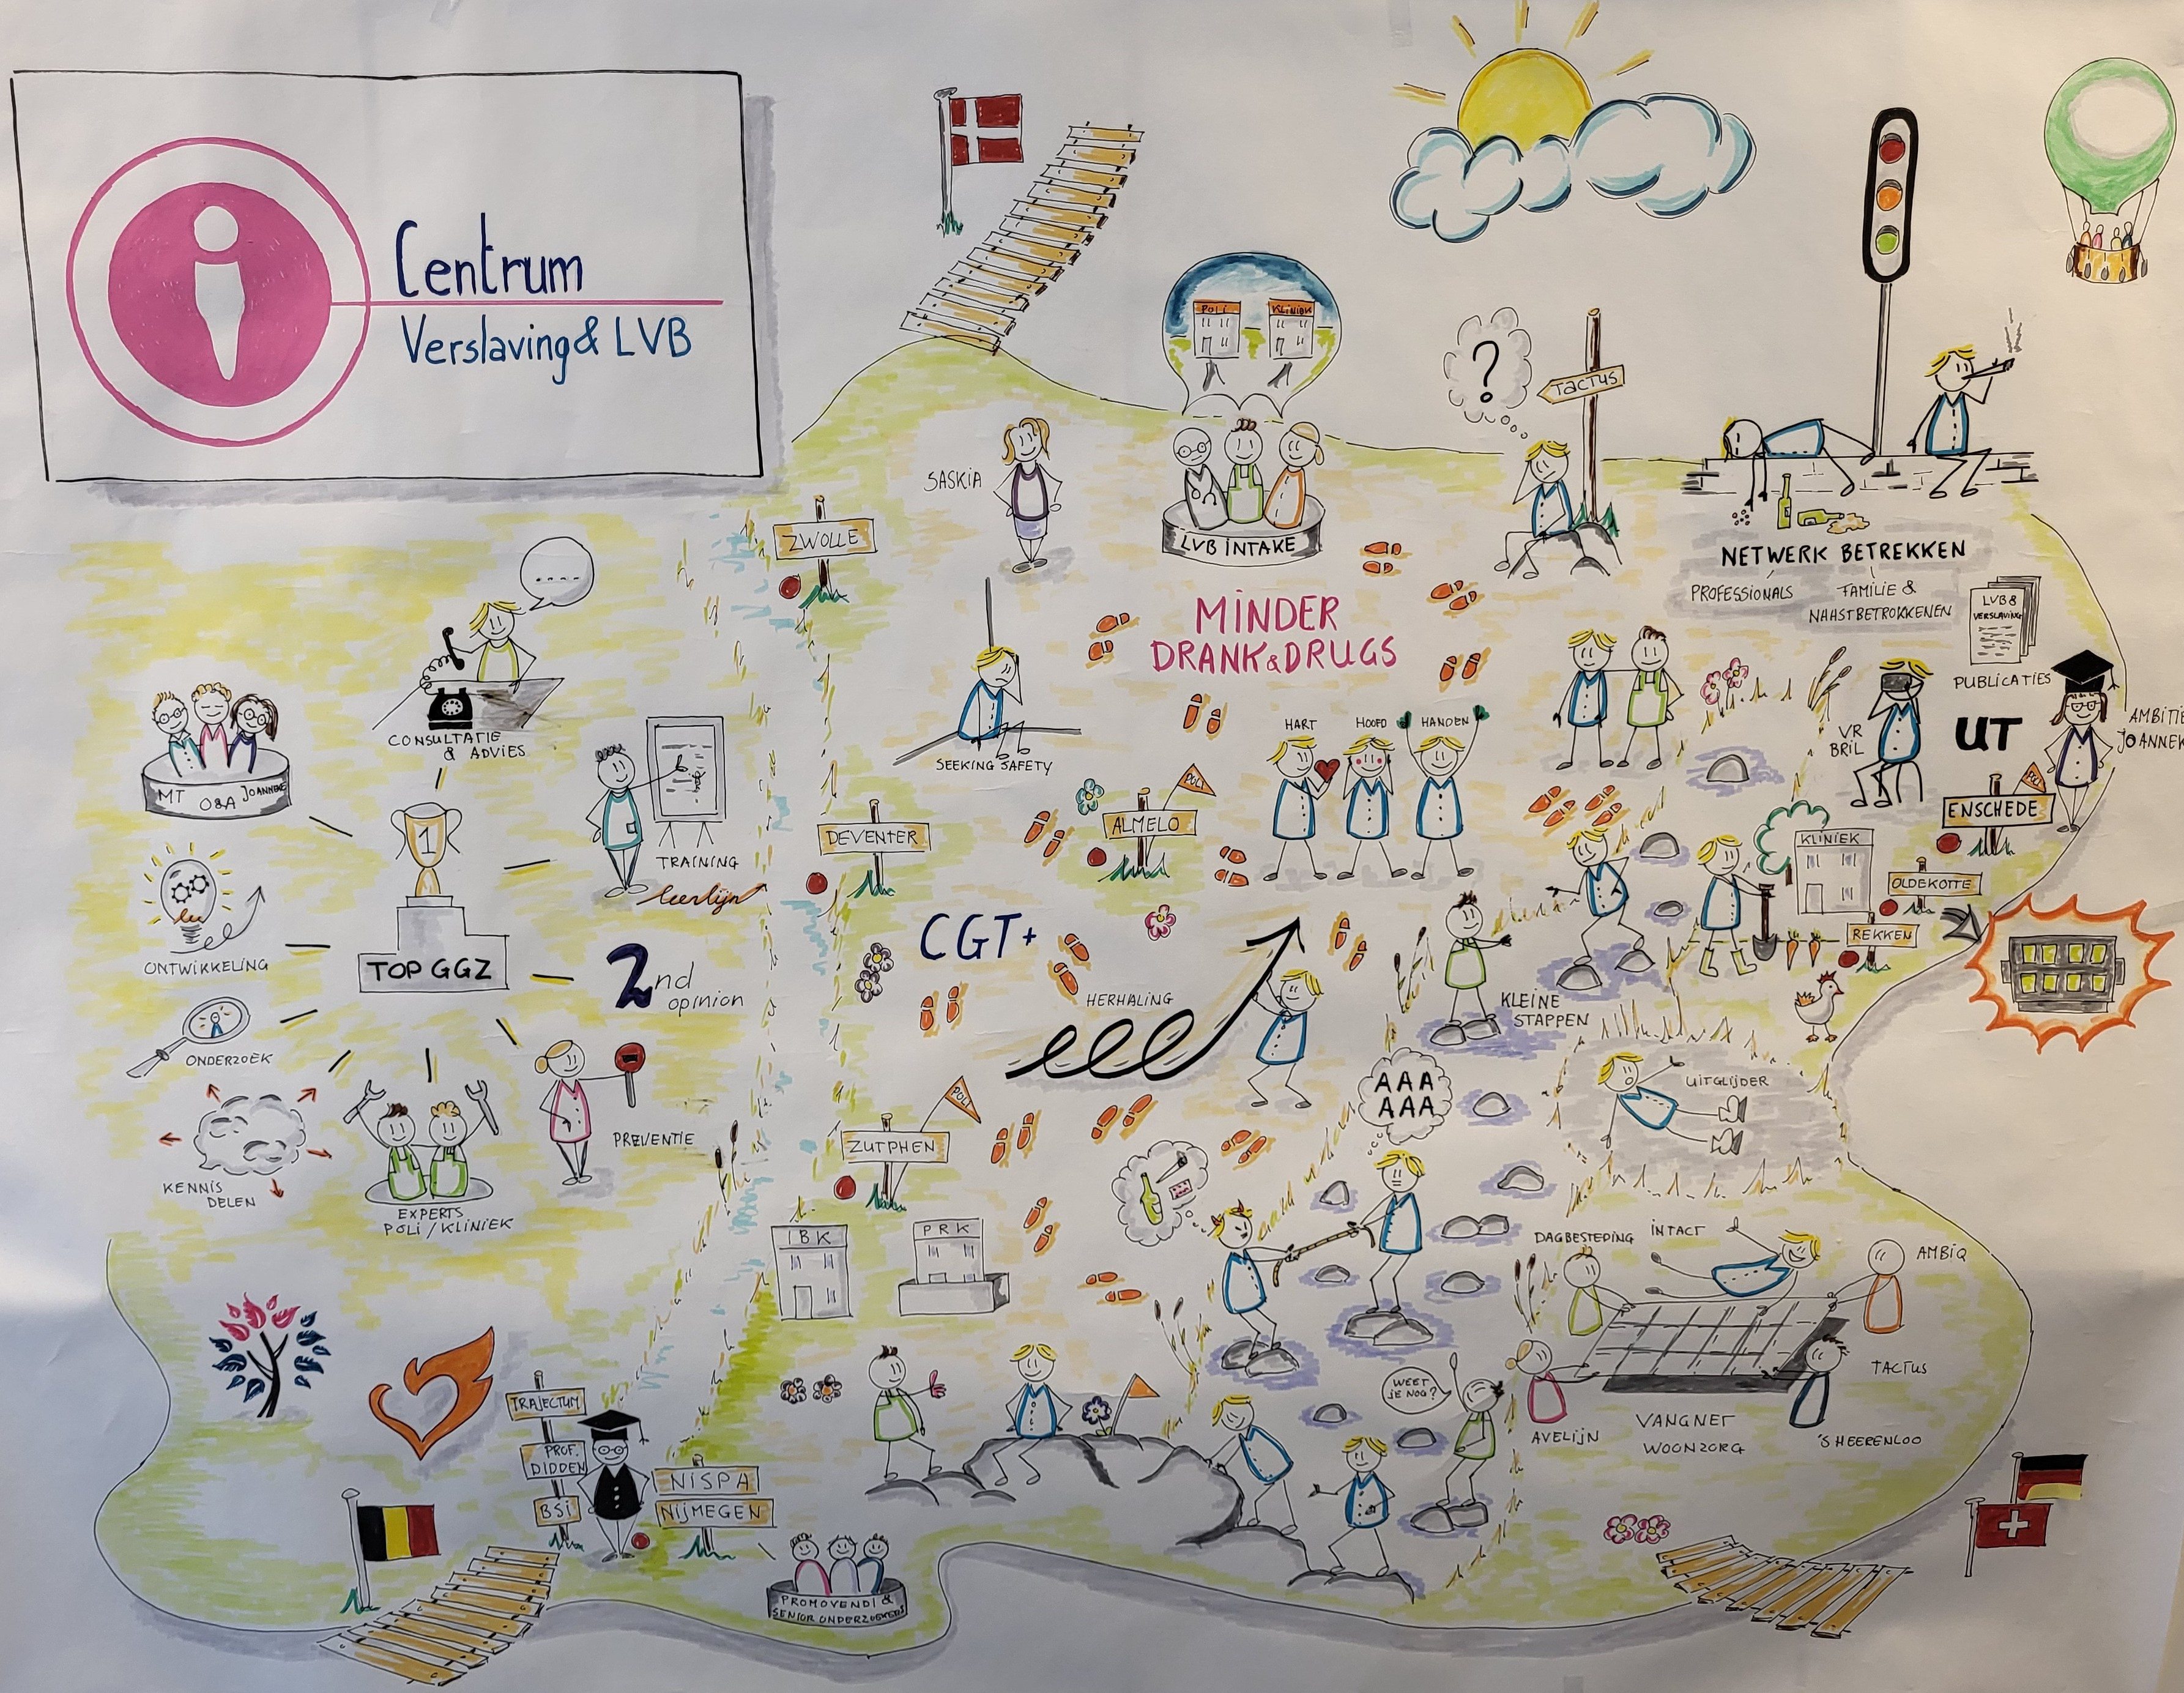 Centrum
Verslaving & LVB
POLI
KLINIEK
?
TACTUS
SASKIA
LVB INTAKE
ZWOLLE
NETWERK BETREKKEN
PROFESSIONALS
FAMILIE &
NAASTBETROKKENEN
LVB &
VERSLAVING
PUBLICATIES
MINDER
DRANK & DRUGS
CONSULTATIE
& ADVIES
MT O&A JOANNEKE
TRAINING
leerlijn
SEEKING SAFETY
HART
HOOFD
HANDEN
VR
BRIL
UT
AMBITIE
JOANNEK
POLI
ENSCHEDE
DEVENTER
POLI
ALMELO
KLINIEK
OLDEKOTTE
REKKEN
1
TOP GGZ
ONTWIKKELING
2nd
opinion
CGT+
HERHALING
KLEINE
STAPPEN
ONDERZOEK
KENNIS
DELEN
EXPERTS
POLI / KLINIEK
PREVENTIE
POLI
ZUTPHEN
AAA
AAA
UITGLIJDER
IBK
PRK
DAGBESTEDING
INTACT
AMBIQ
TACTUS
AVELIJN
'S HEERENLOO
VANGNET
WOONZORG
WEET
JE NOG?
TRAJECTUM
PROF.
DIDDEN
BSI
NISPA
NIJMEGEN
PROMOVENDI &
SENIOR ONDERZOEKERS